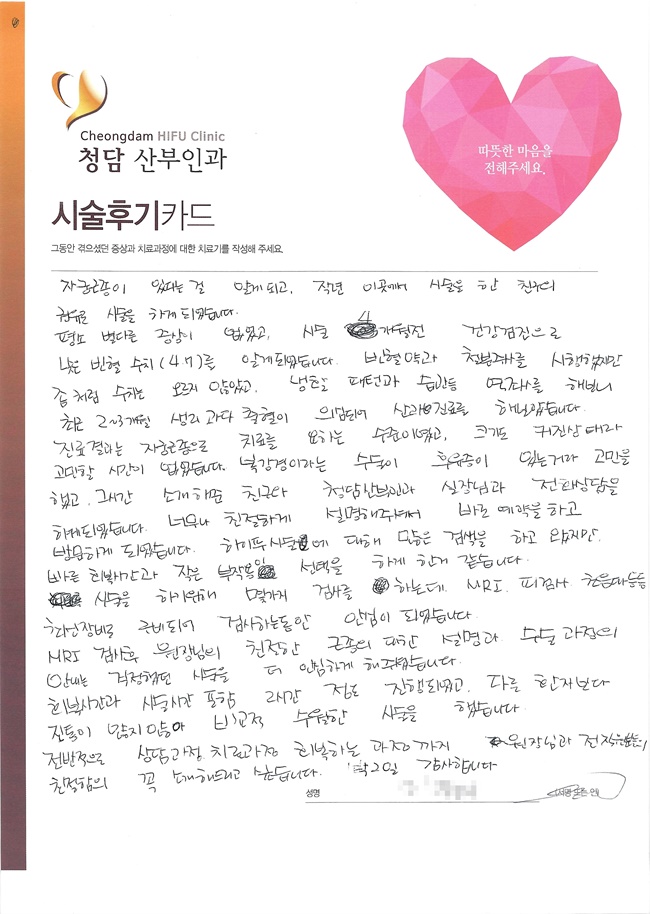 Cheongdam HIFU Clinic
청담 산부인과
따뜻한 마음을
전해주세요.
시술후기카드
그동안 겪으셨던 증상과 치료과정에 대한 치료기를 작성해 주세요.
자궁근종이 있다는 걸 알게되고, 작년 이곳에서 시술을 한 친구의
권유로 시술을 하게 되었습니다.
평소 별다른 증상이 없었고, 시술 4개월전 건강검진으로
낮은 빈혈 수치(4.7)를 알게되었습니다. 빈혈약과 철분주사를 시행했지만
좀처럼 수치는 오르지 않았고, 생활 패턴과 습관등 면담사를 해보니
최근 2~3개월 생리과다 출혈이 의심되어 산과진료를 해보았습니다.
진료결과는 자궁근종으로 치료를 요하는 수준이였고, 크기도 커진상태라
고민할 시간이 없었습니다. 복강경이라는 수술이 후유증이 있는거라 고민을
했고, 그시간 소개해준 친구와 청담산부인과 실장님과 전화상담을
하게되었습니다. 너무나 친절하게 설명해주셔서 바로 예약을하고
방문하게 되었습니다. 하이푸시술에 대해 많은 검색을 하고 왔지만.
빠른 회복시간과 작은 부작용이 선택을 하게 한거 같습니다.
시술을 하기위해 몇가지 검사를 하는데, MRI, 피검사, 초음파등등
최신장비로 준비되어 검사하는동안 안심이 되었습니다.
MRI 검사후 원장님의 친절한 근종의 대한 설명과 수술 과정의
안내는 걱정했던 시술을 더 안심하게 해주셨습니다.
회복시간과 시술시간 포함 2시간 정도 진행되었고, 다른 환자보다
진통이 많지않아 비교적 수월한 시술을 했습니다.
전반적으로 상담과정, 치료과정 회복하는 과정까지 원장님과 전직원분들의
친절함의 꼭 소개해드리고 싶습니다. 감사합니다
성명
(서명 또는 인)